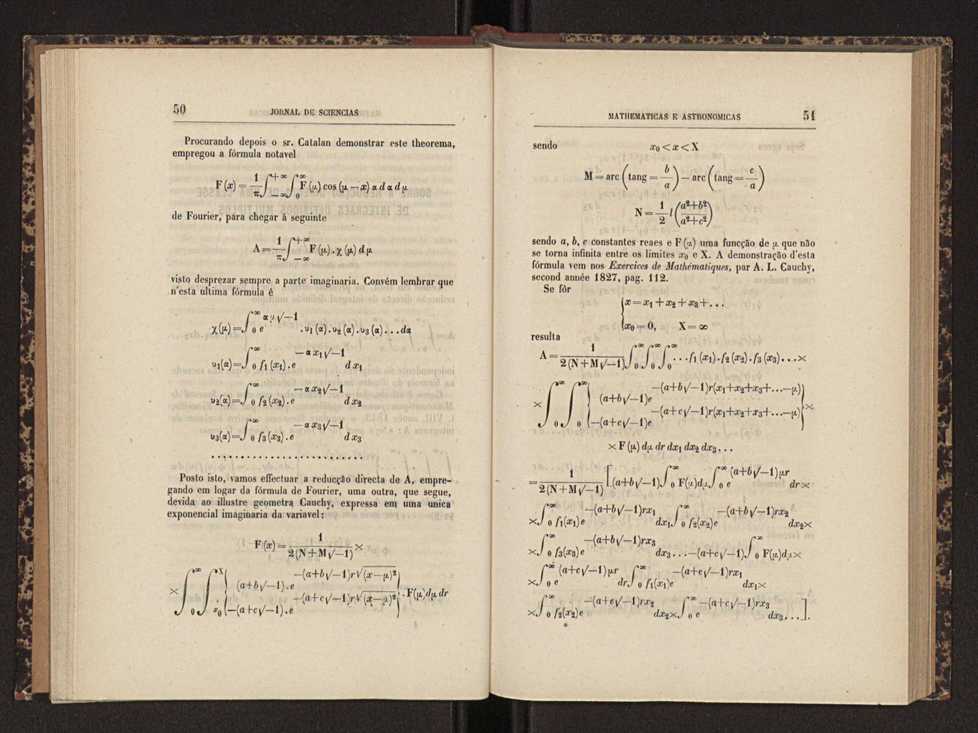 50
JORNAL DE SCIENCIAS
Procurando depois o sr. Catalan demonstrar este theorema,
empregou a fórmula notavel
F (x) = 1/π ∫_{−∞}^{+∞} ∫_0^{∞} F (μ) cos (μ − x) α d α d μ
de Fourier, para chegar á seguinte
A = 1/π ∫_{−∞}^{+∞} F (μ) . χ (μ) d μ
visto desprezar sempre a parte imaginaria. Convém lembrar que
n'esta ultima fórmula é
χ (μ) = ∫_0^∞ e^{α μ √−1} . υ1 (α) . υ2 (α) . υ3 (α) . . . dα
υ1(α) = ∫_0^∞ f1 (x1) . e^{− α x1 √−1} d x1
υ2(α) = ∫_0^∞ f2 (x2) . e^{− α x2 √−1} d x2
υ3(α) = ∫_0^∞ f3 (x3) . e^{− α x3 √−1} d x3
. . . . . . . . . . . . . . . . . . . . . . . .
Posto isto, vamos effectuar a reducção directa de A, empre-
gando em logar da fórmula de Fourier, uma outra, que segue,
devida ao illustre geometra Cauchy, expressa em uma unica
exponencial imaginaria da variavel:
F (x) = 1/2 (N + M √−1) ×
× ∫_0^∞ ∫_{x0}^X { (a+b√−1) . e^{−(a+b√−1) r √(x−μ)²} −(a+c√−1) . e^{−(a+c√−1) r √(x−μ)²} } . F(μ) dμ dr
MATHEMATICAS E ASTRONOMICAS
51
sendo x0 < x < X
M = arc (tang = b/a) − arc (tang = c/a)
N = 1/2 l (a²+b²/a²+c²)
sendo a, b, c constantes reaes e F (μ) uma funcção de μ que não
se torna infinita entre os limites x0 e X. A demonstração d'esta
fórmula vem nos Exercices de Mathématiques, par A. L. Cauchy,
second année 1827, pag. 112.
Se fôr
{ x = x1 + x2 + x3 + . . .
x0 = 0, X = ∞
resulta
A = 1/2 (N + M √−1) ∫_0^∞ ∫_0^∞ ∫_0^∞ . . . f1 (x1) . f2 (x2) . f3 (x3) . . . ×
× ∫_0^∞ ∫_0^∞ { (a+b√−1)e^{−(a+b√−1)r(x1+x2+x3+...−μ)} −(a+c√−1)e^{−(a+c√−1)r(x1+x2+x3+...−μ)} } ×
× F (μ) dμ dr dx1 dx2 dx3 . . .
= 1/2 (N + M √−1) [ (a+b√−1) ∫_0^∞ F(μ)dμ ∫_0^∞ e^{(a+b√−1)μr} dr ×
× ∫_0^∞ f1(x1)e^{−(a+b√−1)rx1} dx1 ∫_0^∞ f2(x2)e^{−(a+b√−1)rx2} dx2 ×
× ∫_0^∞ f3(x3)e^{−(a+b√−1)rx3} dx3 . . . −(a+c√−1) ∫_0^∞ F(μ)dμ ×
× ∫_0^∞ e^{(a+c√−1)μr} dr ∫_0^∞ f1(x1)e^{−(a+c√−1)rx1} dx1 ×
× ∫_0^∞ f2(x2)e^{−(a+c√−1)rx2} dx2 × ∫_0^∞ e^{−(a+c√−1)rx3} dx3 . . . ].